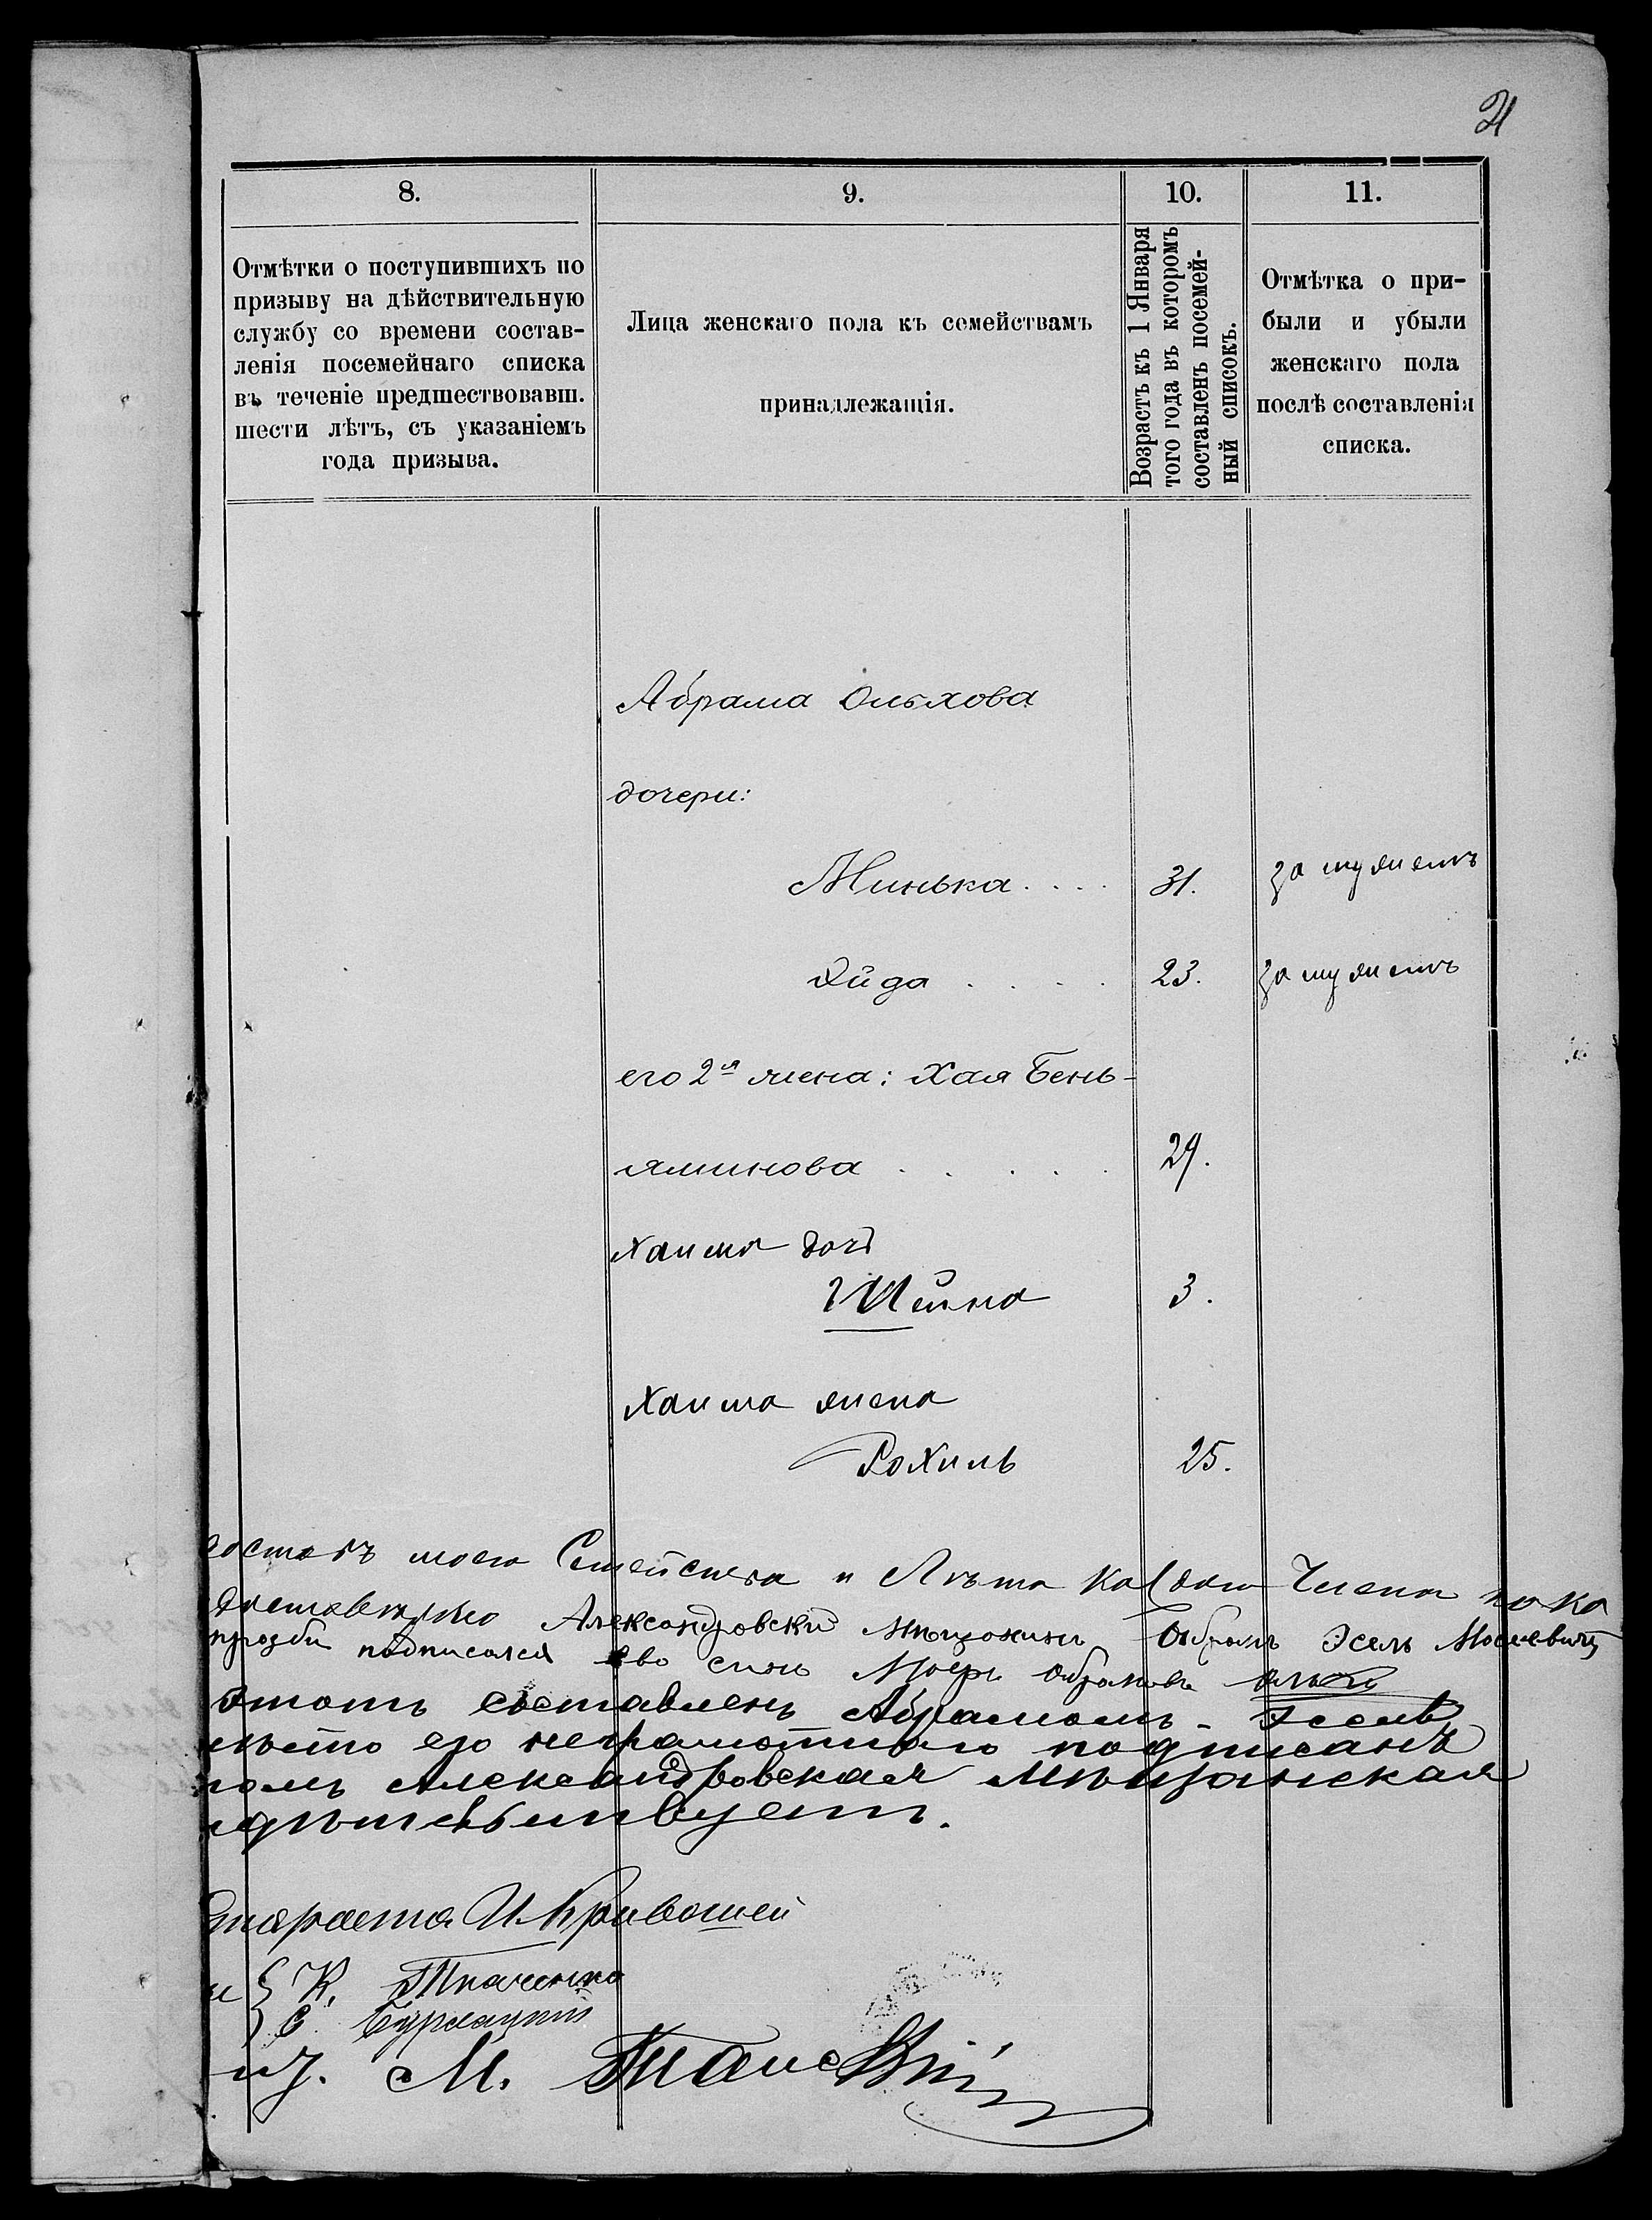 21
8.
9.
10.
11.
Отмѣтки о поступившихъ по
призыву на дѣйствительную
службу со времени состав-
ленія посемейнаго списка
въ теченіе предшествовавш.
шести лѣтъ, съ указаніемъ
года призыва.
Лица женскаго пола къ семействамъ
принадлежащія.
Возрастъ къ 1 Января
того года въ которомъ
составленъ посемей-
ный списокъ.
Отмѣтка о при-
были и убыли
женскаго пола
послѣ составленія
списка.
Абрама
дочери:
Минька . . . . 31. замужемъ
Хйда . . . . 23. замужемъ
его 2я жена: Хая Бень-
яминова . . . . . 29.
Хаима дочь
Шейна 3.
Хаима жена
Рохиль 25.
составъ моего Семейства и Лѣта Каждаго Члена пока
Александровский Мещанинъ Абрамъ Эсель Мосеевичъ
прозби подписался ево синъ Абрамовъ
этотъ составленъ Абрамомъ - Эсель
место его неграмотнаго подписанъ
Александровская Мѣщанская
Староста И. Кривошей
К. Ткаченко
С.
М.